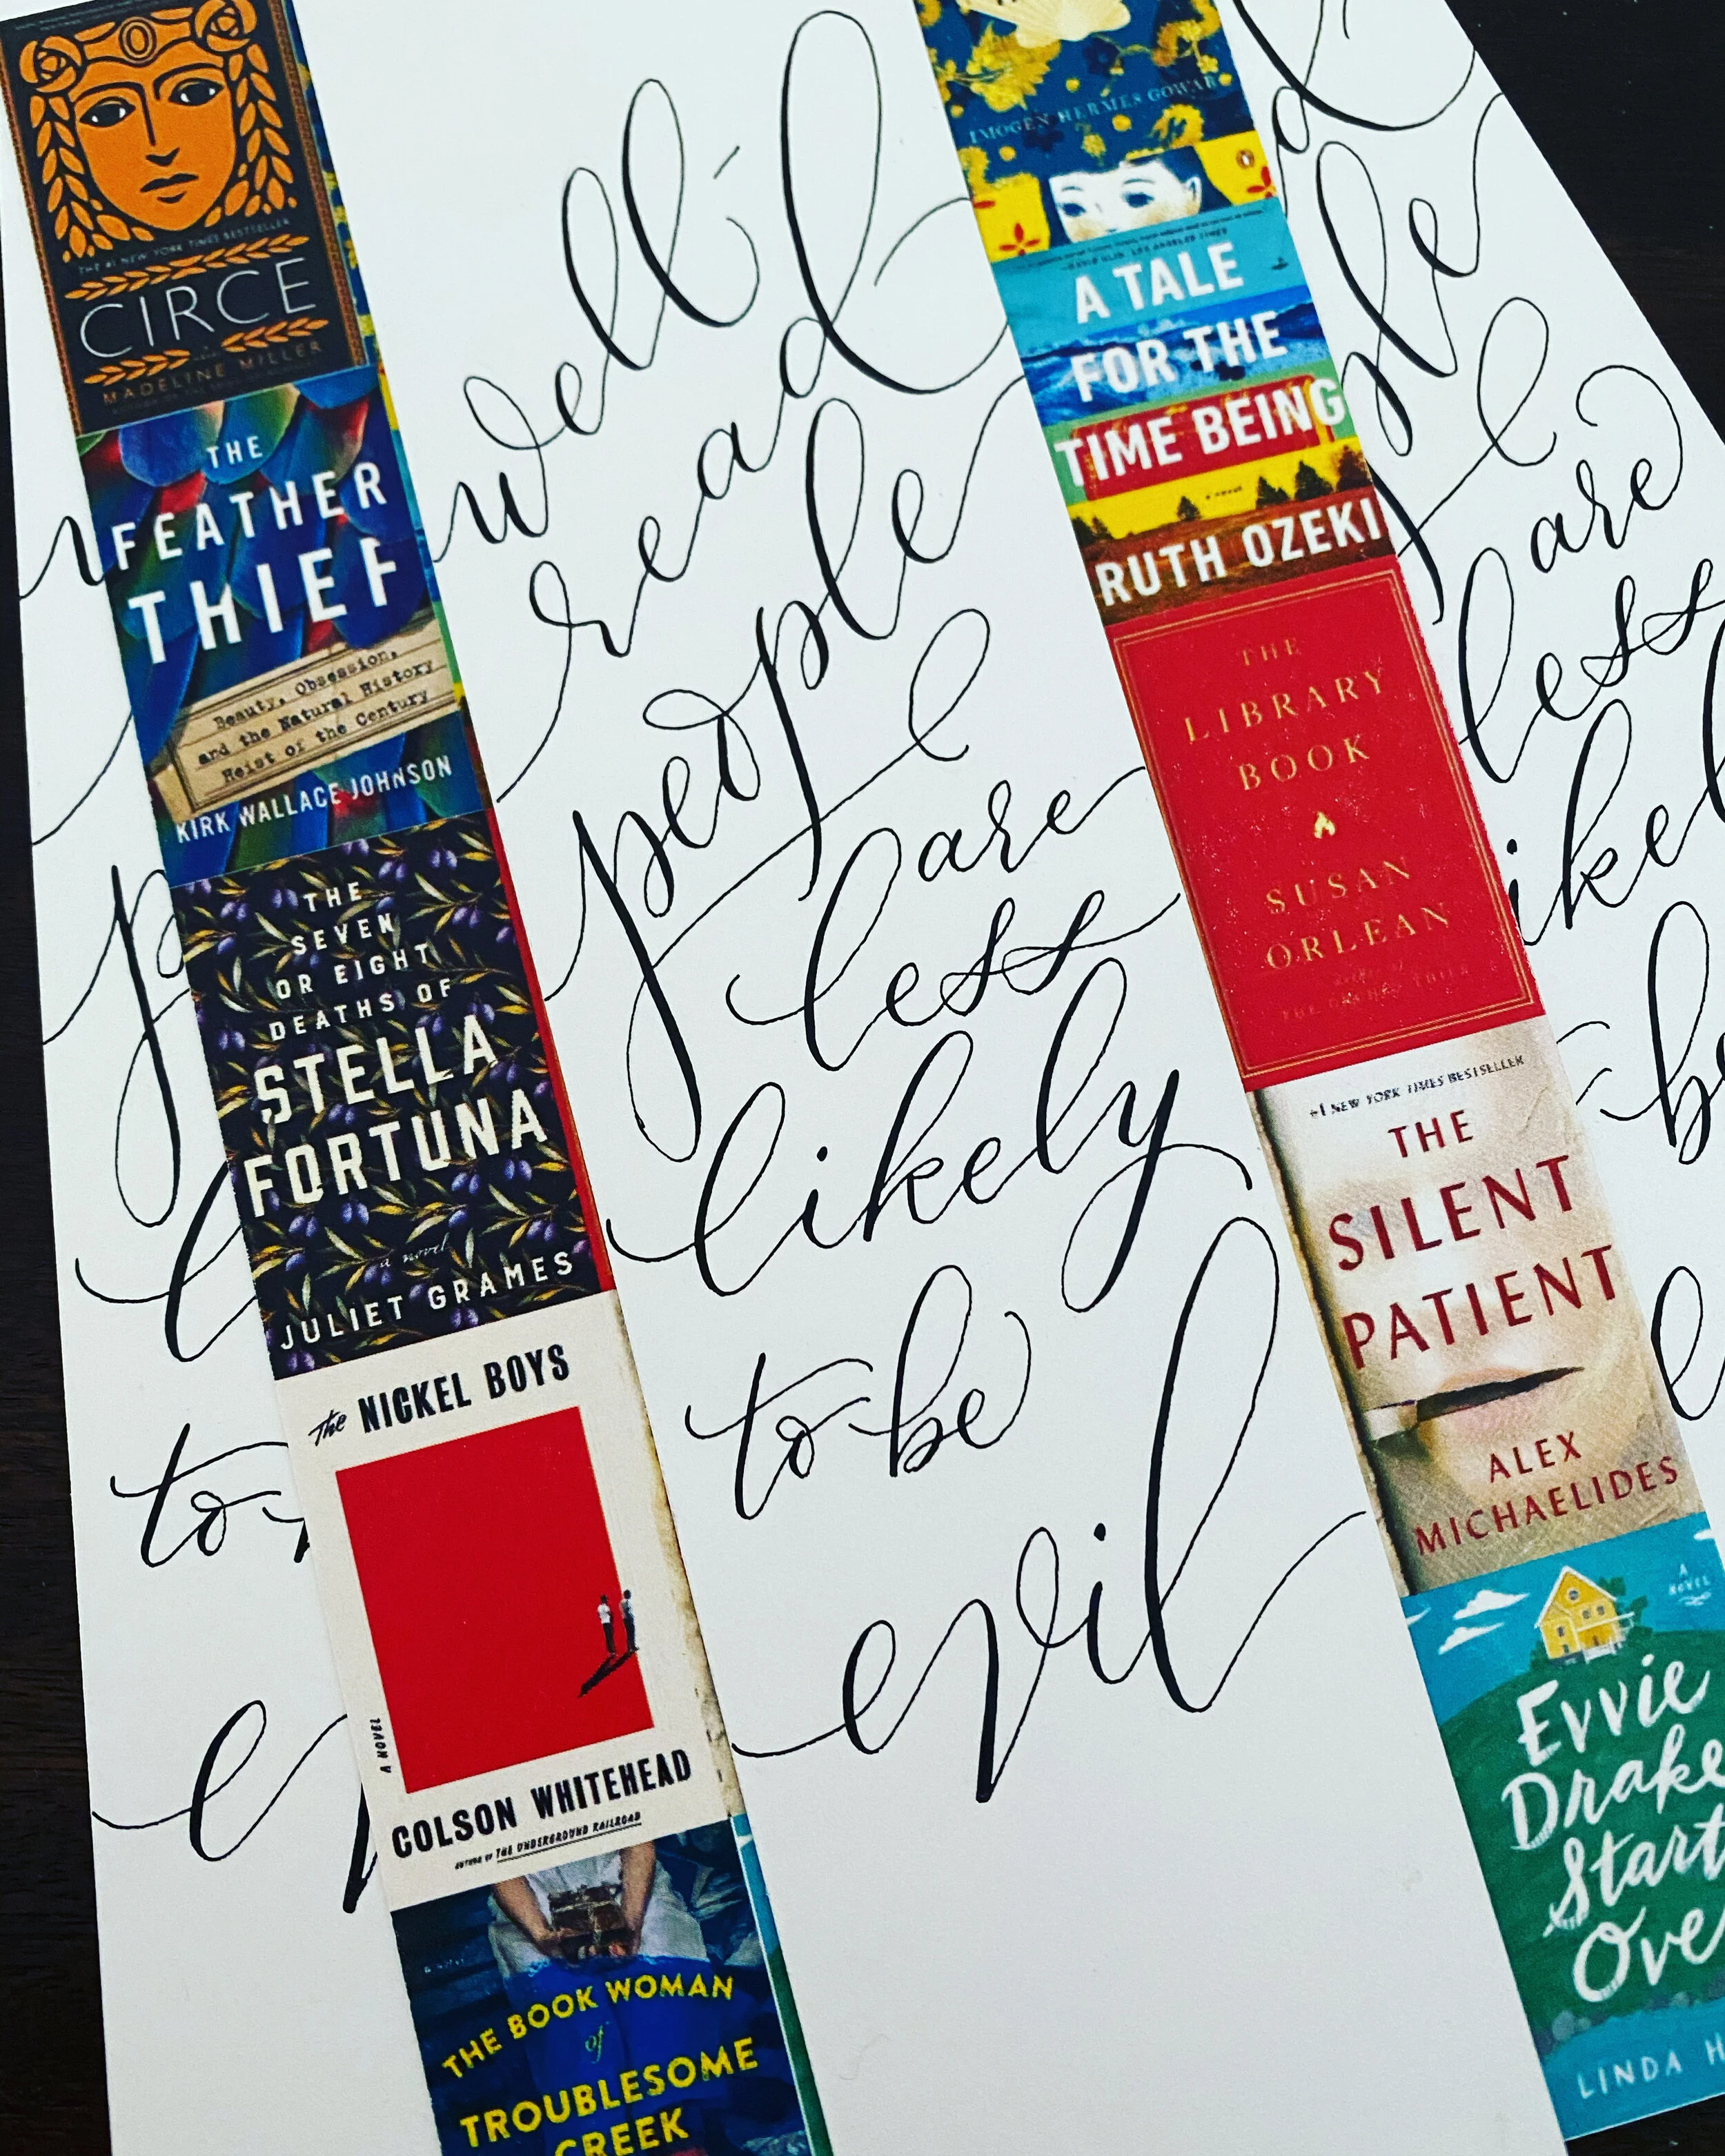 THE #1 NEW YORK TIMES BESTSELLER
CIRCE
MADELINE MILLER
THE
FEATHER
THIEF
Beauty, Obsession,
and the Natural History
Heist of the Century
KIRK WALLACE JOHNSON
THE
SEVEN
OR EIGHT
DEATHS OF
STELLA
FORTUNA
a novel
JULIET GRAMES
The NICKEL BOYS
A NOVEL
COLSON WHITEHEAD
AUTHOR OF THE UNDERGROUND RAILROAD
THE BOOK WOMAN
of
TROUBLESOME
CREEK
well-
read
people
are
less
likely
to be
evil
IMOGEN HERMES GOWAR
DAVID ULIN, LOS ANGELES TIMES
A TALE
FOR THE
TIME BEING
a novel
RUTH OZEKI
THE
LIBRARY
BOOK
SUSAN
ORLEAN
author of
THE ORCHID THIEF
#1 NEW YORK TIMES BESTSELLER
THE
SILENT
PATIENT
ALEX
MICHAELIDES
A
NOVEL
Evvie
Drake
Start
Ove
LINDA H
d
ple
are
less
ikel
be
e
p
l
to
e